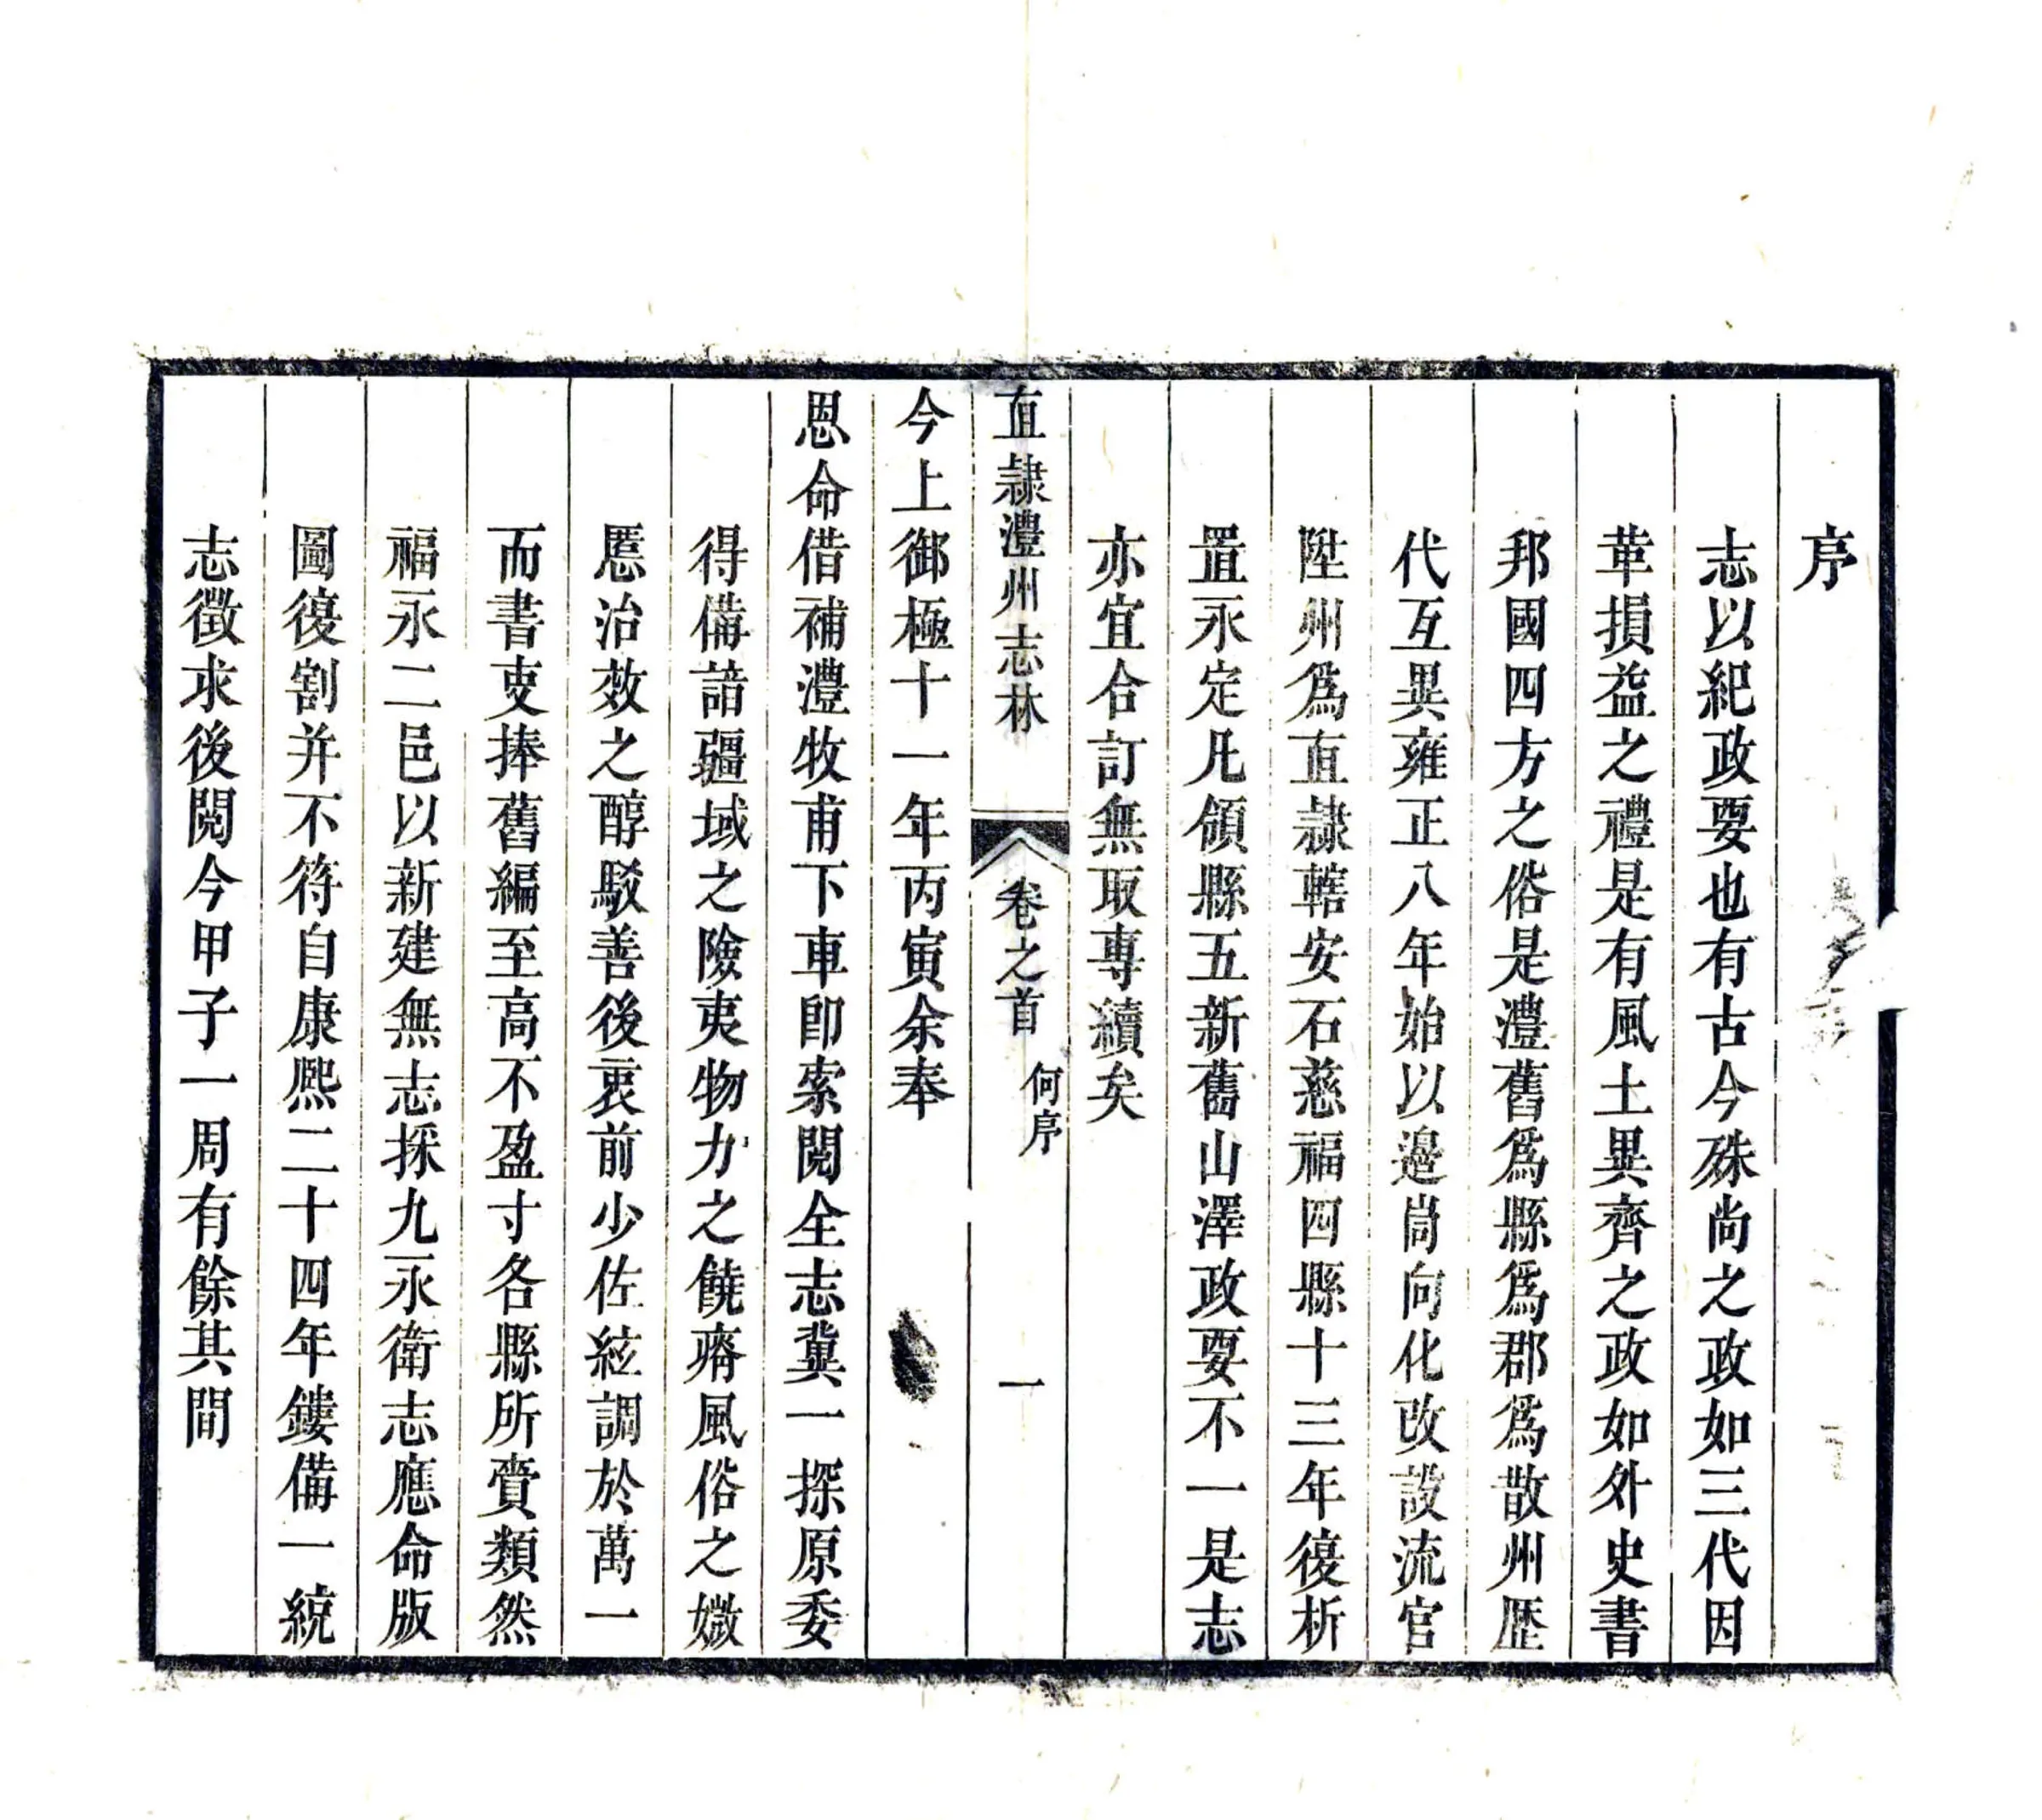 序
志以紀政要也有古今殊尚之政如三代因
革損益之禮是有風土異齊之政如外史書
邦國四方之俗是澧舊爲縣爲郡爲散州歷
代互異雍正八年始以邊峝向化改設流官
陞州爲直隷轄安石慈福四縣十三年復析
置永定凡領縣五新舊山澤政要不一是志
亦宜合訂無取專續矣
直隷澧州志林
卷之首
何序
一
今上御極十一年丙寅余奉
恩命借補澧牧甫下車卽索閱全志冀一探原委
得備諳疆域之險夷物力之饒瘠風俗之媺
慝治效之醇駁善後衷前少佐絃調於萬一
而書吏捧舊編至高不盈寸各縣所賫類然
福永二邑以新建無志採九永衛志應命版
圖復割并不符自康熙二十四年鏤備一統
志徵求後閱今甲子一周有餘其間